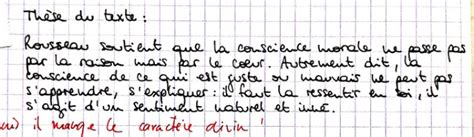 Thèse du texte :
Rousseau soutient que la conscience morale ne passe pas
par la raison mais par le coeur. Autrement dit, la
conscience de ce qui est juste ou mauvais ne peut pas
s'apprendre, s'expliquer : il faut la ressentir en soi, il
s'agit d'un sentiment naturel et inné.
il manque le caractère divin !